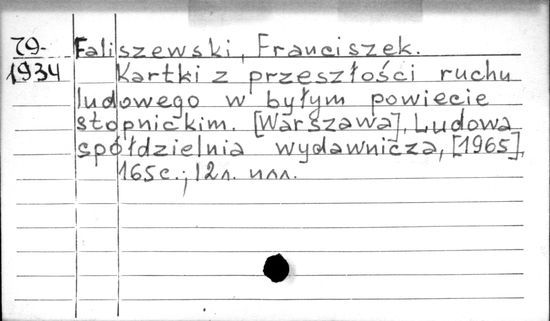 79-
1934
Faliszewski, Franciszek.
Kartki z przeszłości ruchu
ludowego w byłym powiecie
stopnickim. [Warszawa], Ludowa
spółdzielnia wydawnicza, [1965],
165с.; 12л. илл.